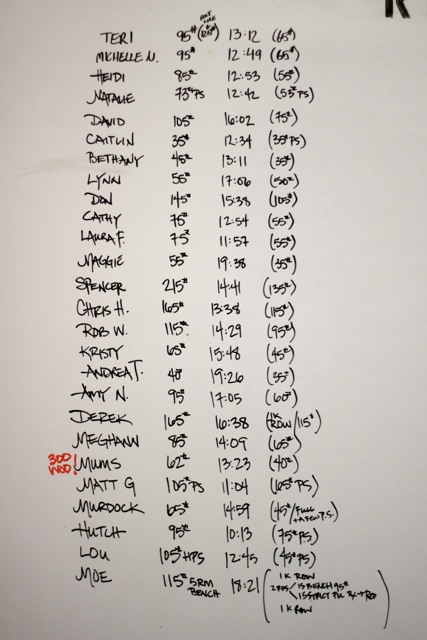 TERI 95# (105#) 13:12 (65#)
MICHELLE N. 95# 12:49 (65#)
HEIDI 85# 12:53 (55#)
NATALIE 73#PS 12:42 (53#PS)
DAVID 105# 16:02 (75#)
CAITLIN 35# 12:34 (35#PS)
BETHANY 45# 13:11 (35#)
LYNN 55# 17:06 (50#)
DON 145# 15:38 (105#)
CATHY 75# 12:54 (55#)
LAURA F. 75# 11:57 (55#)
MAGGIE 55# 19:38 (35#)
SPENCER 215# 14:41 (135#)
CHRIS H. 165# 13:38 (115#)
ROB W. 115# 14:29 (95#)
KRISTY 65# 15:48 (45#)
ANDREA T. 40# 19:26 (35#)
AMY N. 95# 17:05 (60#)
DEREK 165# 16:38 (1K ROW/115#)
MEGHANN 85# 14:09 (65#)
300 WOD! MUMS 62# 13:23 (40#)
MATT G 105#PS 11:04 (65#PS)
MURDOCK 65# 14:59 (45#/FULL + A FEW P.S.)
HUTCH 95# 10:13 (75#PS)
LOU 105#HPS 12:45 (45#PS)
MOE 115# 5RM BENCH 18:21 (1K ROW
15 BENCH 95#
15 STRICT PU
1K ROW